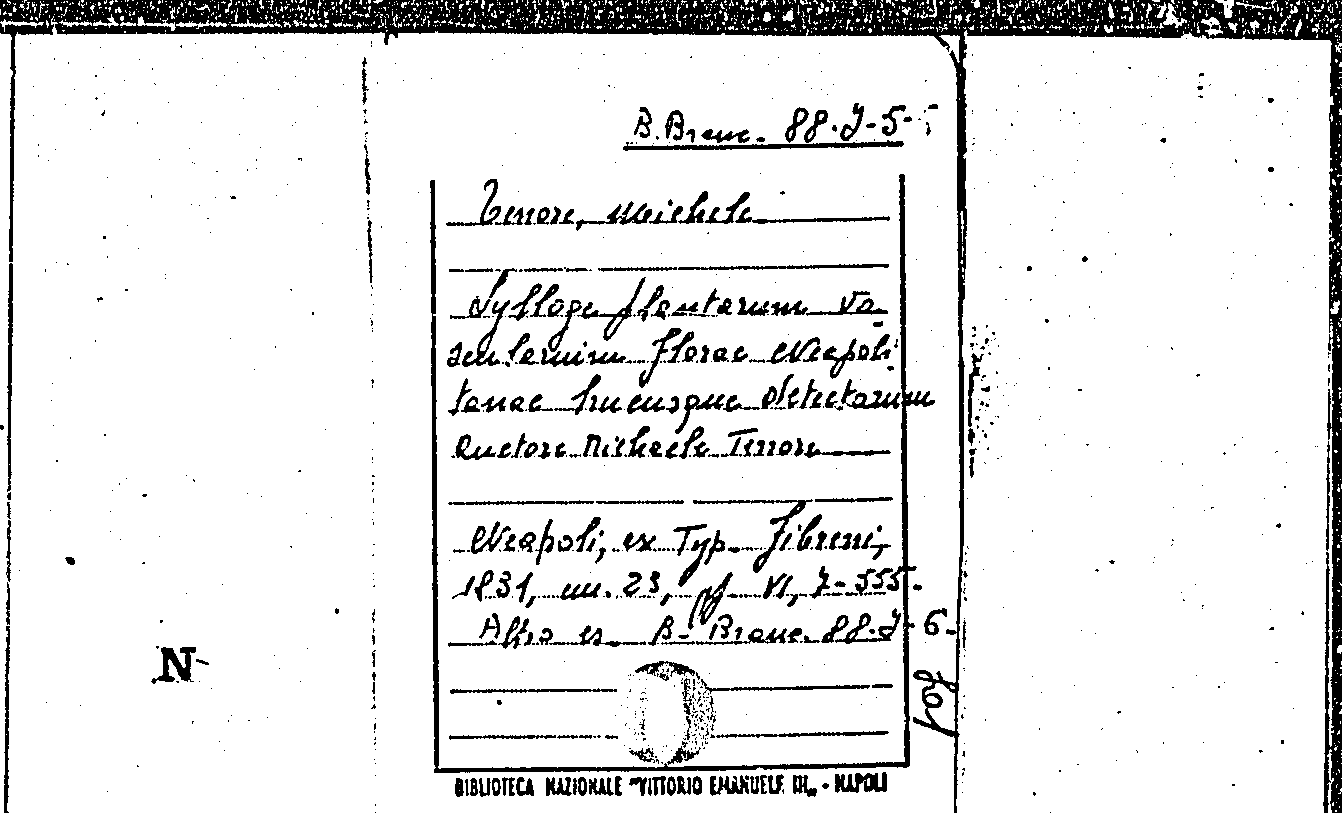 B. Branc. 88. J-5-
Tenore, Michele
Sylloge plantarum va-
scularium florae Neapoli-
tanae hucusque detectarum
Auctore Michaele Tenore
Neapoli, ex Typ. Fibreni,
1831, cm. 23, pp. VI, 7-555.
Altro es. B. Branc. 88. J-6-
N
BIBLIOTECA NAZIONALE "VITTORIO EMANUELE III„ - NAPOLI